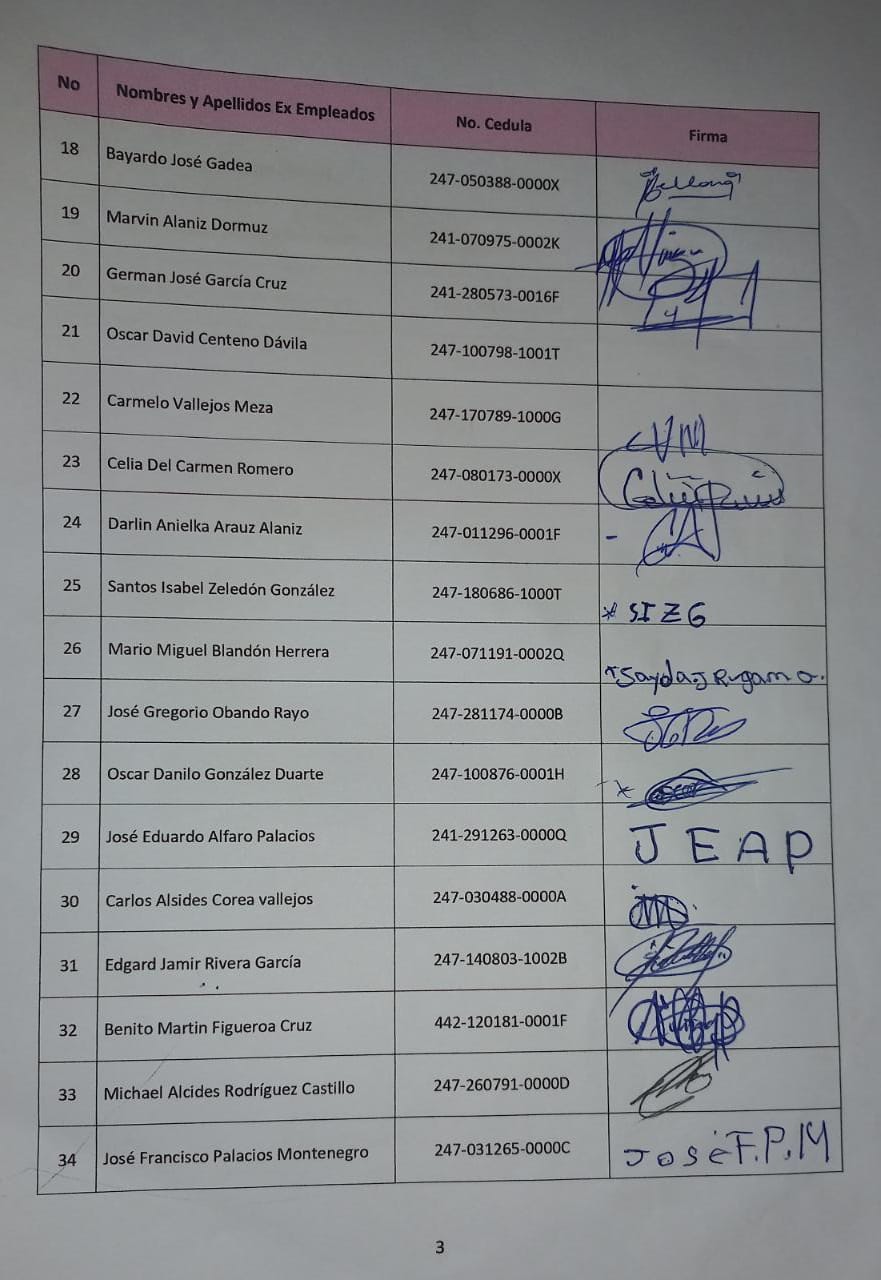 No Nombres y Apellidos Ex Empleados No. Cedula Firma
18 Bayardo José Gadea 247-050388-0000X
19 Marvin Alaniz Dormuz 241-070975-0002K
20 German José García Cruz 241-280573-0016F
21 Oscar David Centeno Dávila 247-100798-1001T
22 Carmelo Vallejos Meza 247-170789-1000G CVM
23 Celia Del Carmen Romero 247-080173-0000X
24 Darlin Anielka Arauz Alaniz 247-011296-0001F
25 Santos Isabel Zeledón González 247-180686-1000T * SIZG
26 Mario Miguel Blandón Herrera 247-071191-0002Q Sayda J Rugama
27 José Gregorio Obando Rayo 247-281174-0000B
28 Oscar Danilo González Duarte 247-100876-0001H
29 José Eduardo Alfaro Palacios 241-291263-0000Q J E A P
30 Carlos Alsides Corea vallejos 247-030488-0000A
31 Edgard Jamir Rivera García 247-140803-1002B
32 Benito Martin Figueroa Cruz 442-120181-0001F
33 Michael Alcides Rodríguez Castillo 247-260791-0000D
34 José Francisco Palacios Montenegro 247-031265-0000C José F.P.M
3